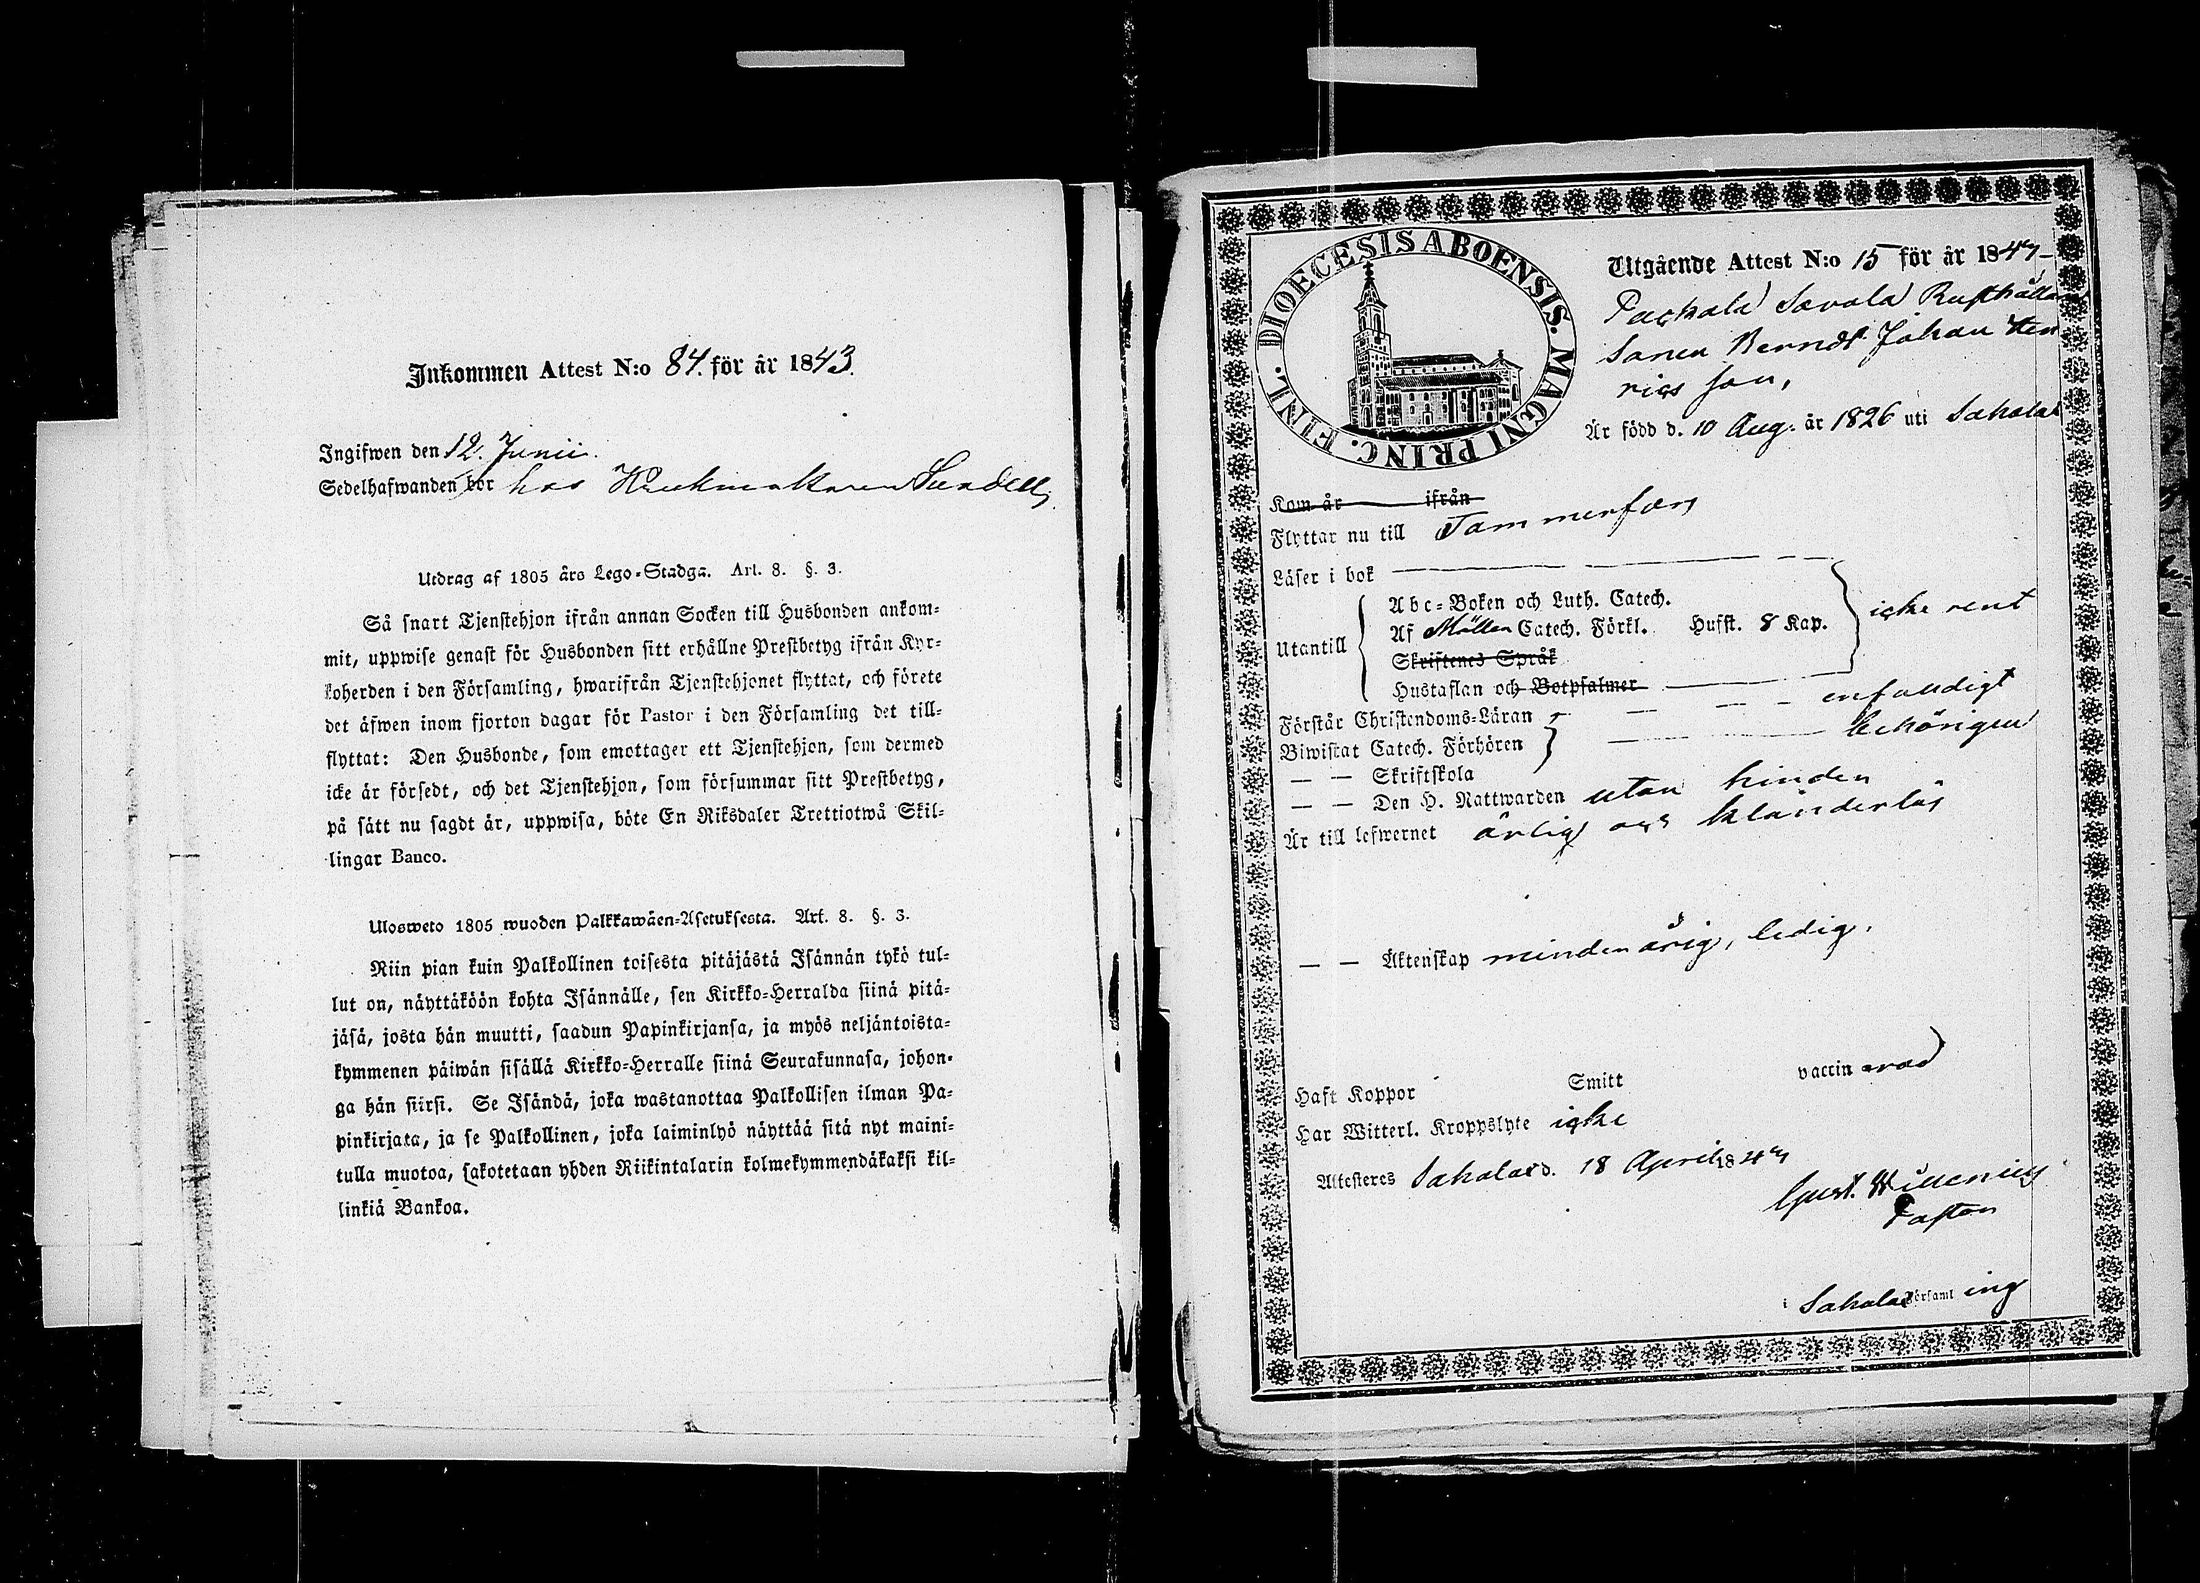 Inkommen Attest N:o 84. för år 1843.
Ingifwen den 12. Junii.
Sedelhafwanden bor hos Krukmakaren Sundell
Utdrag af 1805 års Lego-Stadga. Art. 8. §. 3.
Så snart Tjenstehjon ifrån annan Socken till Husbonden ankom-
mit, uppwise genast för Husbonden sitt erhållne Prestbetyg ifrån Kyr-
koherden i den Församling, hwarifrån Tjenstehjonet flyttat, och förete
det äfwen inom fjorton dagar för Pastor i den Församling det till-
flyttat: Den Husbonde, som emottager ett Tjenstehjon, som dermed
icke är försedt, och det Tjenstehjon, som försummar sitt Prestbetyg,
på sätt nu sagdt är, uppwisa, böte En Riksdaler Trettiotwå Skil-
lingar Banco.
Ulosweto 1805 wuoden Palkkawäen-Asetuksesta. Art. 8. §. 3.
Niin pian kuin Palkollinen toisesta pitäjästä Isännän tykö tul-
lut on, näyttäköön kohta Isännälle, sen Kirkko-Herralda siinä pitä-
jäsä, josta hän muutti, saadun Papinkirjansa, ja myös neljäntoista-
kymmenen päiwän sisällä Kirkko-Herralle siinä Seurakunnasa, johon-
ga hän siirsi. Se Isändä, joka wastanottaa Palkollisen ilman Pa-
pinkirjata, ja se Palkollinen, joka laiminlyö näyttää sitä nyt maini-
tulla muotoa, sakotetaan yhden Riikintalarin kolmekymmendäkaksi kil-
linkiä Bankoa.
DIOECESIS ABOENSIS. MAGNI PRINC. FINL.
Utgående Attest N:o 15 för år 184
Savola Rusthålla
Sonen Berndt Johan Hen
rics son,
Är född d. 10 Aug. år 1826 uti Sahalax
Kom år ifrån
Flyttar nu till Tammerfors
Läser i bok
Utantill
Abc-Boken och Luth. Catech.
Af Möllers Catech. Förkl. Hufst. 8 Kap. icke rent
Skriftenes Språk
Hustaflan och Botpsalmer
Förstår Christendoms-Läran enfaldigt
Biwistat Catech. Förhören behörigen
— — Skriftskola
— — Den H. Nattwarden utan hinder
Är till lefwernet ärlig och klanderlös
— — Äktenskap minderårig, ledig.
Haft Koppor Smitt vaccinerad
Har Witterl. Kroppslyte icke
Attesteres Sahalax d. 18 April 184
Gust. Willenius
Pastor
i Sahalax Församling